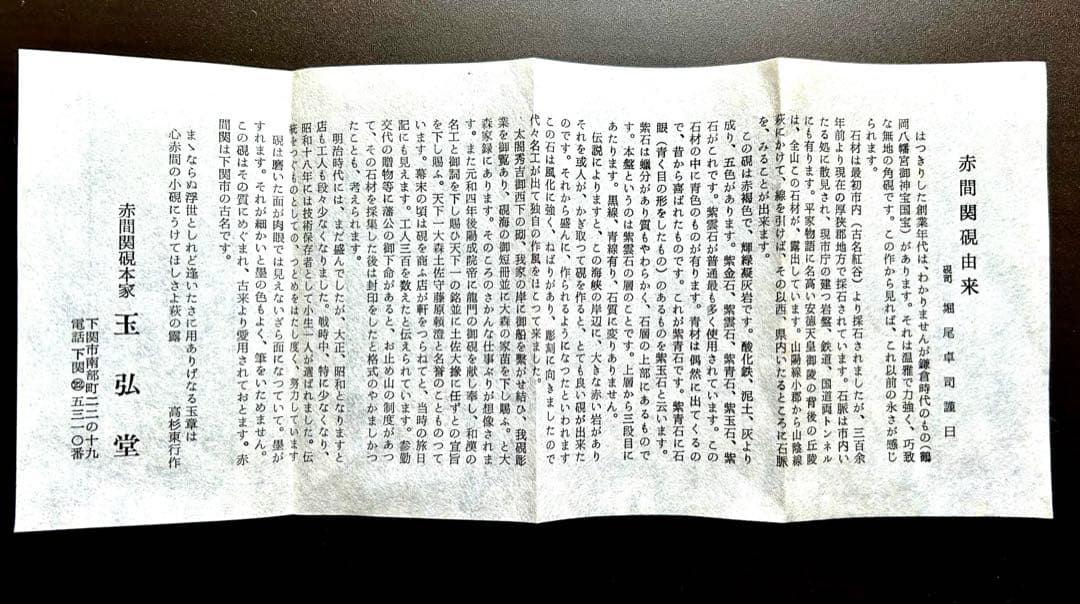 赤間関硯由来
硯司 堀尾卓司謹曰
はつきりした創業年代は、わかりませんが鎌倉時代のもの（鶴
岡八幡宮御神宝国宝）があります。それは温雅で力強く、巧致
な無地の角硯です。この作から見れば、これ以前の永さが感じ
られます。
石材は最初市内（古名紅谷）より採石されましたが、三百余
年前より現在の厚狭郡地方で採石されています。石脈は市内い
たる処に散見され、現市庁の建つ岩盤、鉄道、国道両トンネル
にも有ります。平家物語に名高い安徳天皇御陵の背後の丘陵
は、全山この石材が、露出しています。山陽線小郡から山陰線
萩にかけて、線を引けば、その以西、県内いたるところに石脈
を、みることが出来ます。
この硯は赤褐色で、輝緑凝灰岩です。酸化鉄、泥土、灰より
成り、五色があります。紫金石、紫雲石、紫青石、紫玉石、紫
石がこれです。紫雲石が普通最も多く使用されています。この
石材の中に青色のものが有ります。青材は偶然に出てくるの
で、昔から喜ばれたものです。これが紫青石です。紫青石に石
眼（青く目の形をしたもの）のあるものを紫玉石と云います。
紫石は蠟分があり質もやわらかく、石層の上部にあるもので
す。本盤というのは紫雲石の層のことです。上層から三段目に
あたります。黒線、青線有り、石質に変りありません。
伝説によりますと、この海峡の岸辺に、大きな赤い岩があり
それを或人が、かぎ取つて硯を作ると、とても良い硯が出来た
のです。それから盛んに、作られるようになつたといわれます
この石は風化に強く、ねばりがあり、彫刻に向きましたので
代々名工が出て独自の作風をほこつて来ました。
太閤秀吉御西下の砌、我家の岸に御船を繫がせ給ひ、我硯彫
業を御覧あり、硯海の御短冊並に大森の家苗を下し賜ふ。と大
森家録にあります。そのころのさかんな仕事ぶりが想像されま
す。また元和四年後陽成院帝に龍門の御硯を献し、和漢の
名工と御詞を下し賜ひ天下一の銘並に土佐大掾に任ずとの宣旨
を下し賜ふ。天下一大森土佐守藤原頼澄と名誉のことものつて
います。幕末の頃は硯を商ふ店が軒をつらねてと、当時の旅日
記にも見えます。工人三百を数えたと伝えられています。参勤
交代の贈物等に藩公の御下命があると、お止め山の制度があつ
て、その石材を採集した後は封印をしたと格式のやかましかつ
たことも、考えられます。
明治時代には、まだ盛んでしたが、大正、昭和となりますと
店も工人も段々少なくなりました。戦時中、特に少なくなり、
昭和十八年には技術保存者として小生一人が選ばれました。伝
統をつぐものとしての、つとめをはたし度く、努力しています
硯は磨いた面が肉眼では見えないざら面になつていて。墨が
すれます。それが細かいと墨の色もよく、筆をいためません。
この硯はその質にめぐまれ、古来より愛用されておとます。赤
間関は下関市の古名です。
まゝならぬ浮世としれど逢いたさに用ありげなる玉章は
心赤間の小硯にうけてほしさよ萩の露 高杉東行作
赤間関硯本家 玉弘堂
下関市南部町二二の十九
電話下関㉒五三一〇番